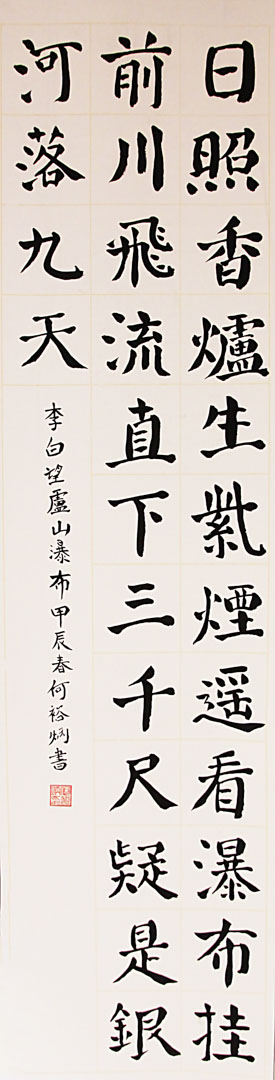 日照香爐生紫煙遥看瀑布挂
前川飛流直下三千尺疑是銀
河落九天
李白望廬山瀑布甲辰春何裕炳書